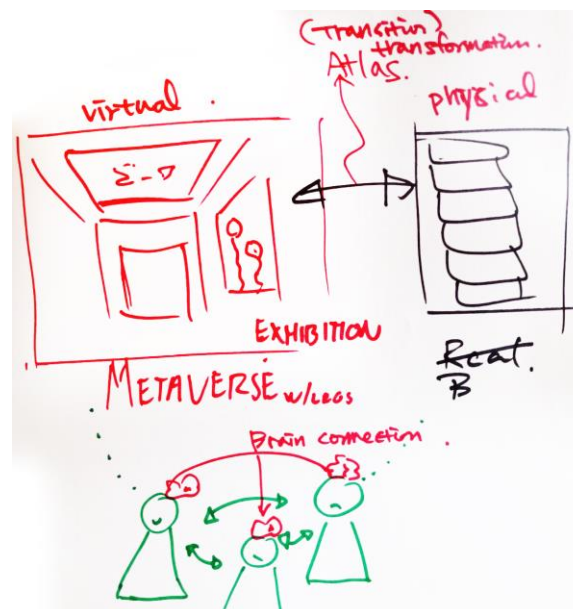 (Transition)
transformation.
Atlas.
virtual.
physical
Σ-D
EXHIBITION
METAVERSE w/LEGS
Real.
B
Brain connection.